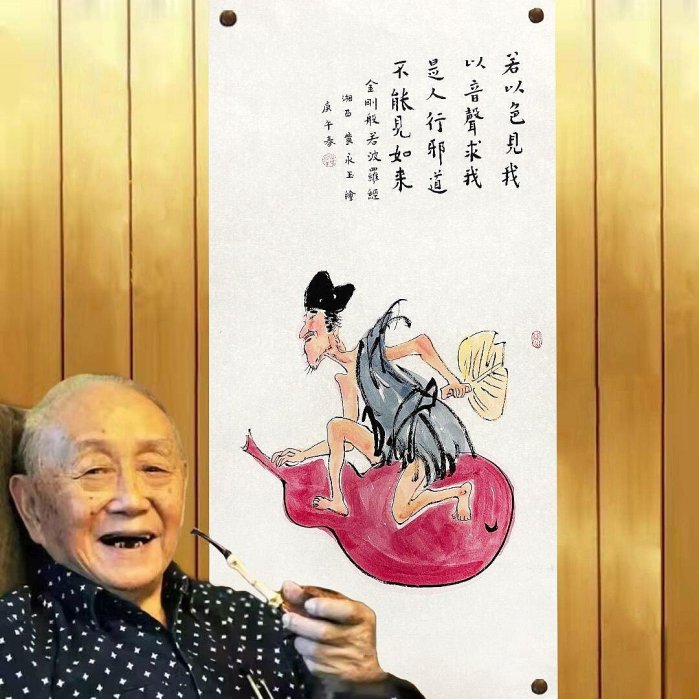 若以色見我
以音聲求我
是人行邪道
不能見如来
金剛般若波羅經
湘西 黃永玉 繪
庚午春